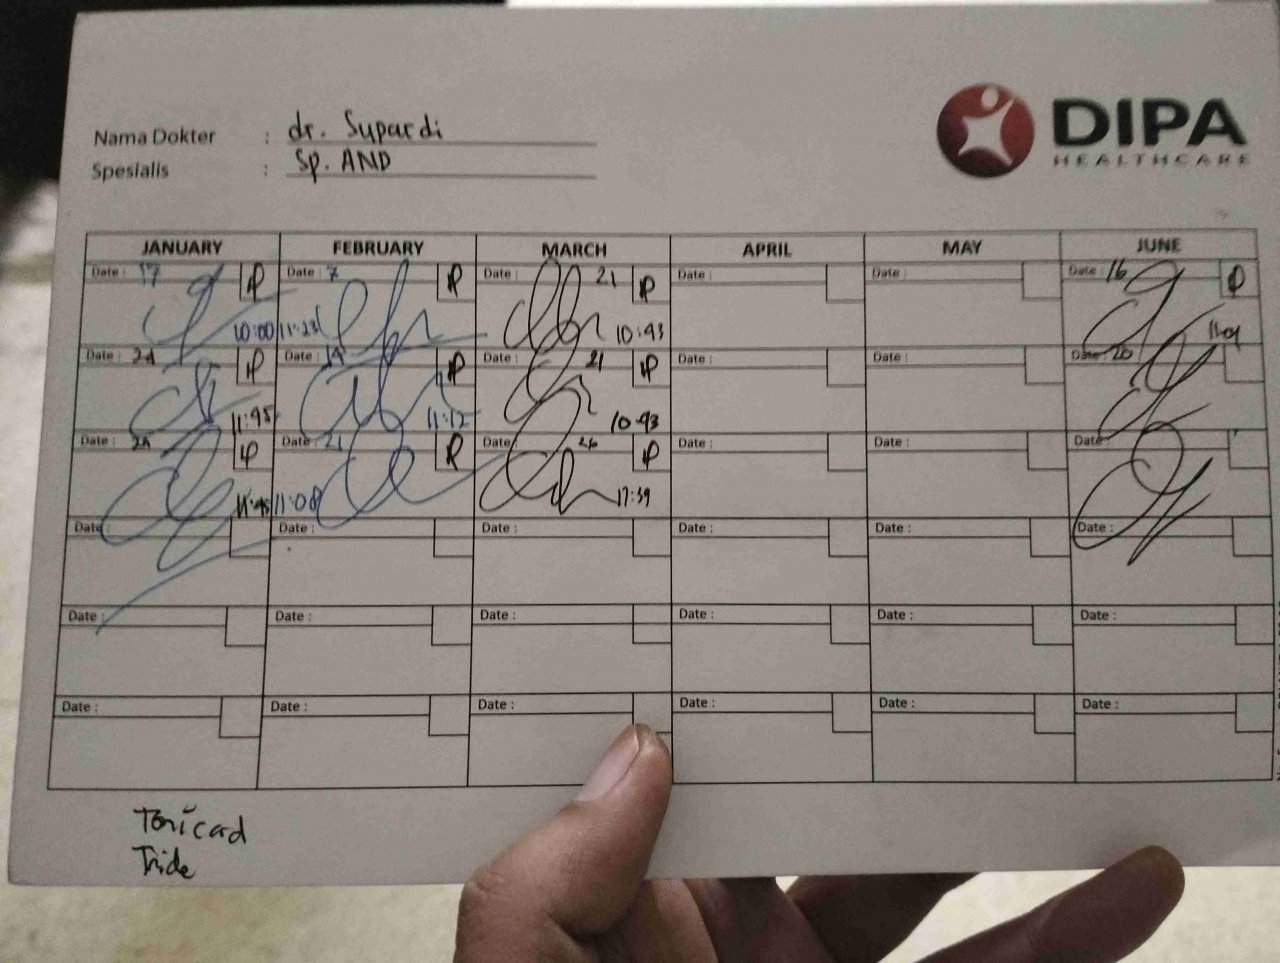 DIPA
HEALTHCARE
Nama Dokter : dr. Supardi
Spesialis : Sp. AND
JANUARY FEBRUARY MARCH APRIL MAY JUNE
Date : 17 Date : 7 Date : 21 Date : Date : Date : 16
10:00 11:23 10:43
Date : 24 Date : Date : 21 Date : Date : Date : 20
11:45 11:12 10:43
Date : 24 Date : 21 Date 26 Date : Date : Date :
11:45 11:08 17:39
Date : Date : Date : Date : Date : Date :
Date : Date : Date : Date : Date : Date :
Date : Date : Date : Date : Date : Date :
Toricard
Tride